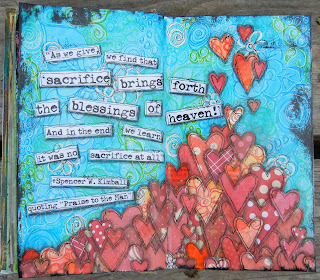 "As we give, we find that
sacrifice brings forth
the blessings of heaven!
And in the end we learn
it was no sacrifice at all"
*Spencer W. Kimball
quoting "Praise to the Man"